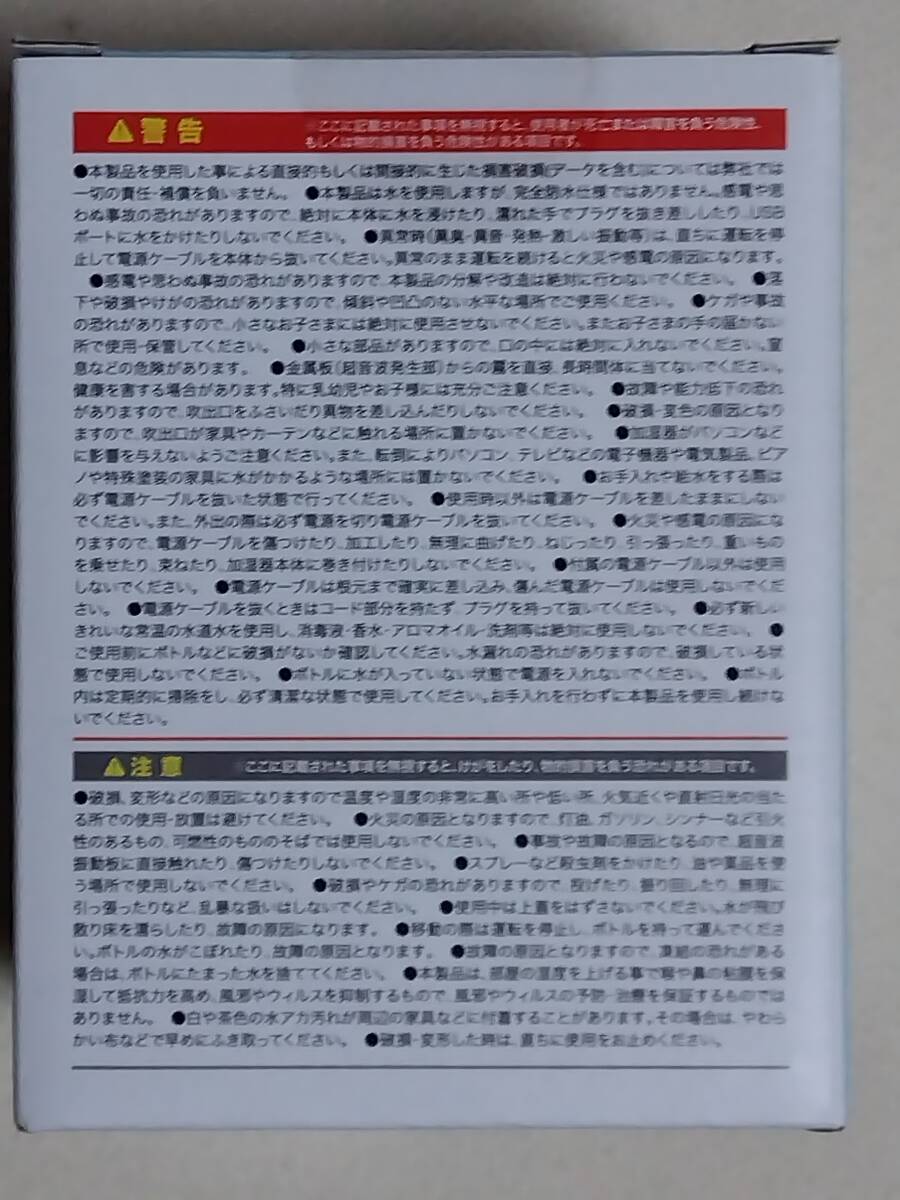 警告
※ここに記載された事項を無視すると、使用者が死亡または障害を負う危険性、
もしくは物的損害を負う危険性がある項目です。
●本製品を使用した事による直接的もしくは間接的に生じた損害破損(データを含む)については弊社では
一切の責任・補償を負いません。 ●本製品は水を使用しますが、完全防水仕様ではありません。感電や思
わぬ事故の恐れがありますので、絶対に本体に水を浸けたり、濡れた手でプラグを抜き差ししたり、USB
ポートに水をかけたりしないでください。 ●異常時(異臭・異音・発熱・激しい振動等)は、直ちに運転を停
止して電源ケーブルを本体から抜いてください。異常のまま運転を続けると火災や感電の原因になります。
●感電や思わぬ事故の恐れがありますので、本製品の分解や改造は絶対に行わないでください。 ●落
下や破損やけがの恐れがありますので、傾斜や凹凸のない水平な場所でご使用ください。 ●ケガや事故
の恐れがありますので、小さなお子さまには絶対に使用させないでください。またお子さまの手の届かない
所で使用・保管してください。 ●小さな部品がありますので、口の中には絶対に入れないでください。窒
息などの危険があります。 ●金属板(超音波発生部)からの霧を直接、長時間体に当てないでください。
健康を害する場合があります。特に乳幼児やお子様には充分ご注意ください。 ●故障や能力低下の恐れ
がありますので、吹出口をふさいだり異物を差し込んだりしないでください。 ●破損・変色の原因となり
ますので、吹出口が家具やカーテンなどに触れる場所に置かないでください。 ●加湿器がパソコンなど
に影響を与えないようご注意ください。また、転倒によりパソコン、テレビなどの電子機器や電気製品、ピア
ノや特殊塗装の家具に水がかかるような場所には置かないでください。 ●お手入れや給水をする際は
必ず電源ケーブルを抜いた状態で行ってください。 ●使用時以外は電源ケーブルを差したままにしない
でください。また、外出の際は必ず電源を切り電源ケーブルを抜いてください。 ●火災や感電の原因にな
りますので、電源ケーブルを傷つけたり、加工したり、無理に曲げたり、ねじったり、引っ張ったり、重いもの
を乗せたり、束ねたり、加湿器本体に巻き付けたりしないでください。 ●付属の電源ケーブル以外は使用
しないでください。 ●電源ケーブルは根元まで確実に差し込み、傷んだ電源ケーブルは使用しないでくだ
さい。 ●電源ケーブルを抜くときはコード部分を持たず、プラグを持って抜いてください。 ●必ず新しい
きれいな常温の水道水を使用し、消毒液・香水・アロマオイル・洗剤等は絶対に使用しないでください。 ●
ご使用前にボトルなどに破損がないか確認してください。水漏れの恐れがありますので、破損している状
態で使用しないでください。 ●ボトルに水が入っていない状態で電源を入れないでください。 ●ボトル
内は定期的に掃除をし、必ず清潔な状態で使用してください。お手入れを行わずに本製品を使用し続けな
いでください。
注意
※ここに記載された事項を無視すると、けがをしたり、物的損害を負う恐れがある項目です。
●破損、変形などの原因になりますので温度や湿度の非常に高い所や低い所、火気近くや直射日光の当た
る所での使用・放置は避けてください。 ●火災の原因となりますので、灯油、ガソリン、シンナーなど引火
性のあるもの、可燃性のもののそばでは使用しないでください。 ●事故や故障の原因となるので、超音波
振動板に直接触れたり、傷つけたりしないでください。 ●スプレーなど殺虫剤をかけたり、油や薬品を使
う場所で使用しないでください。 ●破損やケガの恐れがありますので、投げたり、振り回したり、無理に
引っ張ったりなど、乱暴な扱いはしないでください。 ●使用中は上蓋をはずさないでください。水が飛び
散り床を濡らしたり、故障の原因になります。 ●移動の際は運転を停止し、ボトルを持って運んでくださ
い。ボトルの水がこぼれたり、故障の原因となります。 ●故障の原因となりますので、凍結の恐れがある
場合は、ボトルにたまった水を捨ててください。 ●本製品は、部屋の湿度を上げる事で喉や鼻の粘膜を保
湿して抵抗力を高め、風邪やウィルスを抑制するもので、風邪やウィルスの予防・治療を保証するものでは
ありません。 ●白や茶色の水アカ汚れが周辺の家具などに付着することがあります。その場合は、やわら
かい布などで早めにふき取ってください。 ●破損・変形した時は、直ちに使用をお止めください。